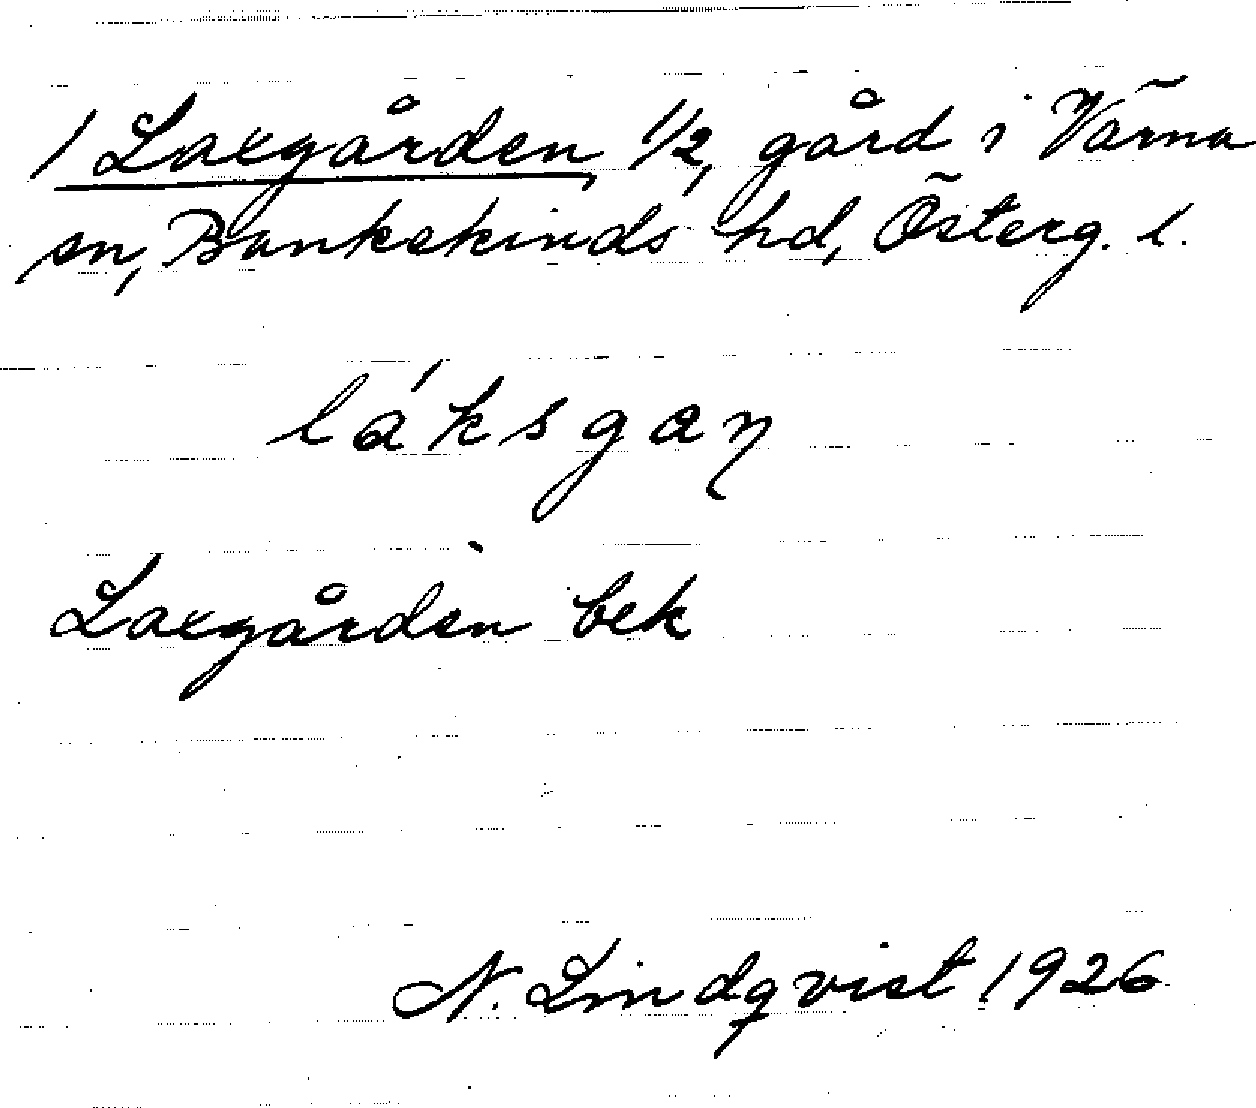 1 Laxgården, 1/2, gård i Värna
sn, Bankekinds hd, Österg. l.
láksgaɳ
Laxgården bek
N. Lindqvist 1926